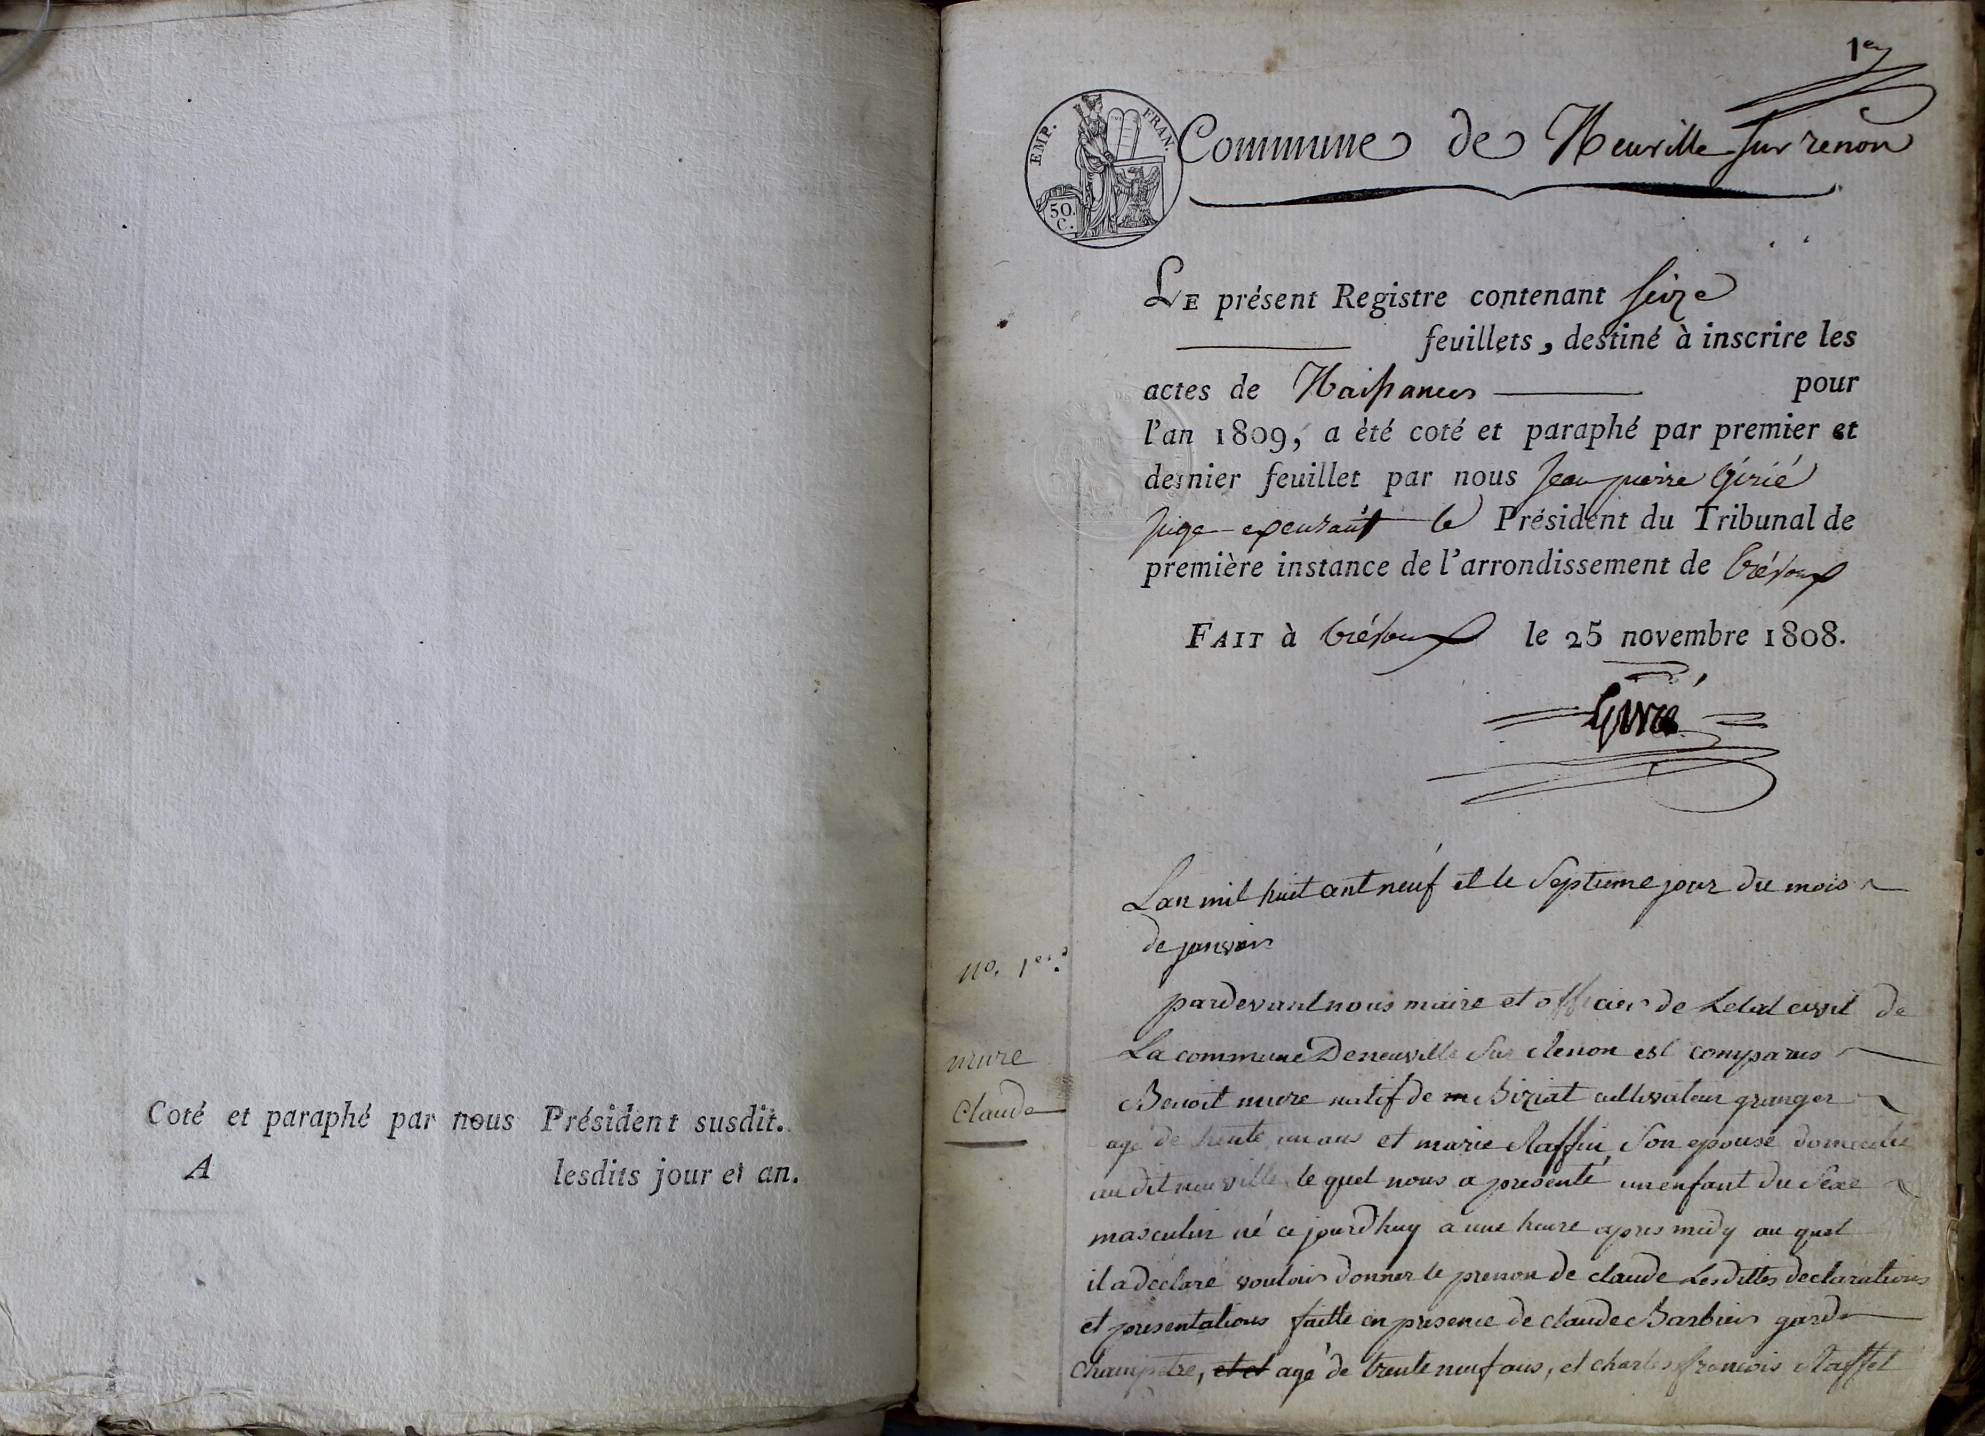 Coté et paraphé par nous Président susdit.
A lesdits jour et an.
1er
EMP. FRAN.
50.
C.
Commune de Neuville sur renon
LE présent Registre contenant seize
feuillets, destiné à inscrire les
actes de Naissances pour
l'an 1809, a été coté et paraphé par premier et
dernier feuillet par nous Jean pierre Girié
juge exerçant le Président du Tribunal de
première instance de l'arrondissement de trévoux
FAIT à trévoux le 25 novembre 1808.
Girié
Lan mil huit cent neuf et le Septieme jour du mois
de janvier
no. 1er
pardevant nous maire et officier de Letat civil de
mure
La commune Deneuville Sur Renon est comparus
Claude
Benoit mure natif de Biziat cultivateur granger
agé de trente un ans et marie Raffin Son epouse domicilié
au dit neuville le quel nous a presenté un enfant du Sexe
masculin né ce jourdhuy a une heure apres midy au quel
il a declaré vouloir donner le prenon de claude Lesdittes declarations
et presentations faitte en presence de claude Barbier garde
champetre, et et agé de trente neuf ans, et charles francois Raffet